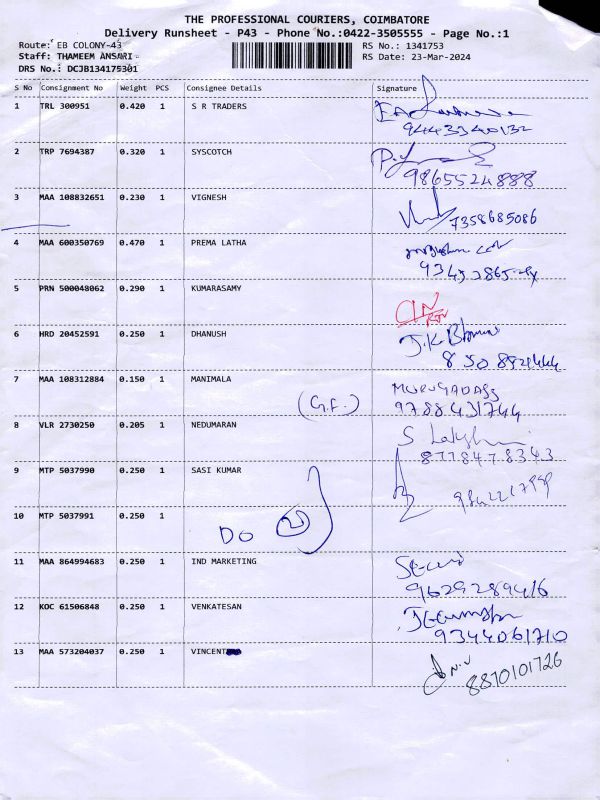 THE PROFESSIONAL COURIERS, COIMBATORE
Delivery Runsheet - P43 - Phone No.:0422-3505555 - Page No.:1
Route: EB COLONY-43 RS No.: 1341753
Staff: THAMEEM ANSARI RS Date: 23-Mar-2024
DRS No.: DCJB134175301
S No Consignment No Weight PCS Consignee Details Signature
1 TRL 300951 0.420 1 S R TRADERS
9443340132
2 TRP 7694387 0.320 1 SYSCOTCH
9865524888
3 MAA 108832651 0.230 1 VIGNESH
7358685086
4 MAA 600350769 0.470 1 PREMA LATHA
5 PRN 500048062 0.290 1 KUMARASAMY
6 HRD 20452591 0.250 1 DHANUSH
7 MAA 108312884 0.150 1 MANIMALA MURUGADASS
(G.F.) 9788431744
8 VLR 2730250 0.205 1 NEDUMARAN S
8778478343
9 MTP 5037990 0.250 1 SASI KUMAR
10 MTP 5037991 0.250 1
DO 2
11 MAA 864994683 0.250 1 IND MARKETING
9629289416
12 KOC 61506848 0.250 1 VENKATESAN
9344061710
13 MAA 573204037 0.250 1 VINCENT
8870101726